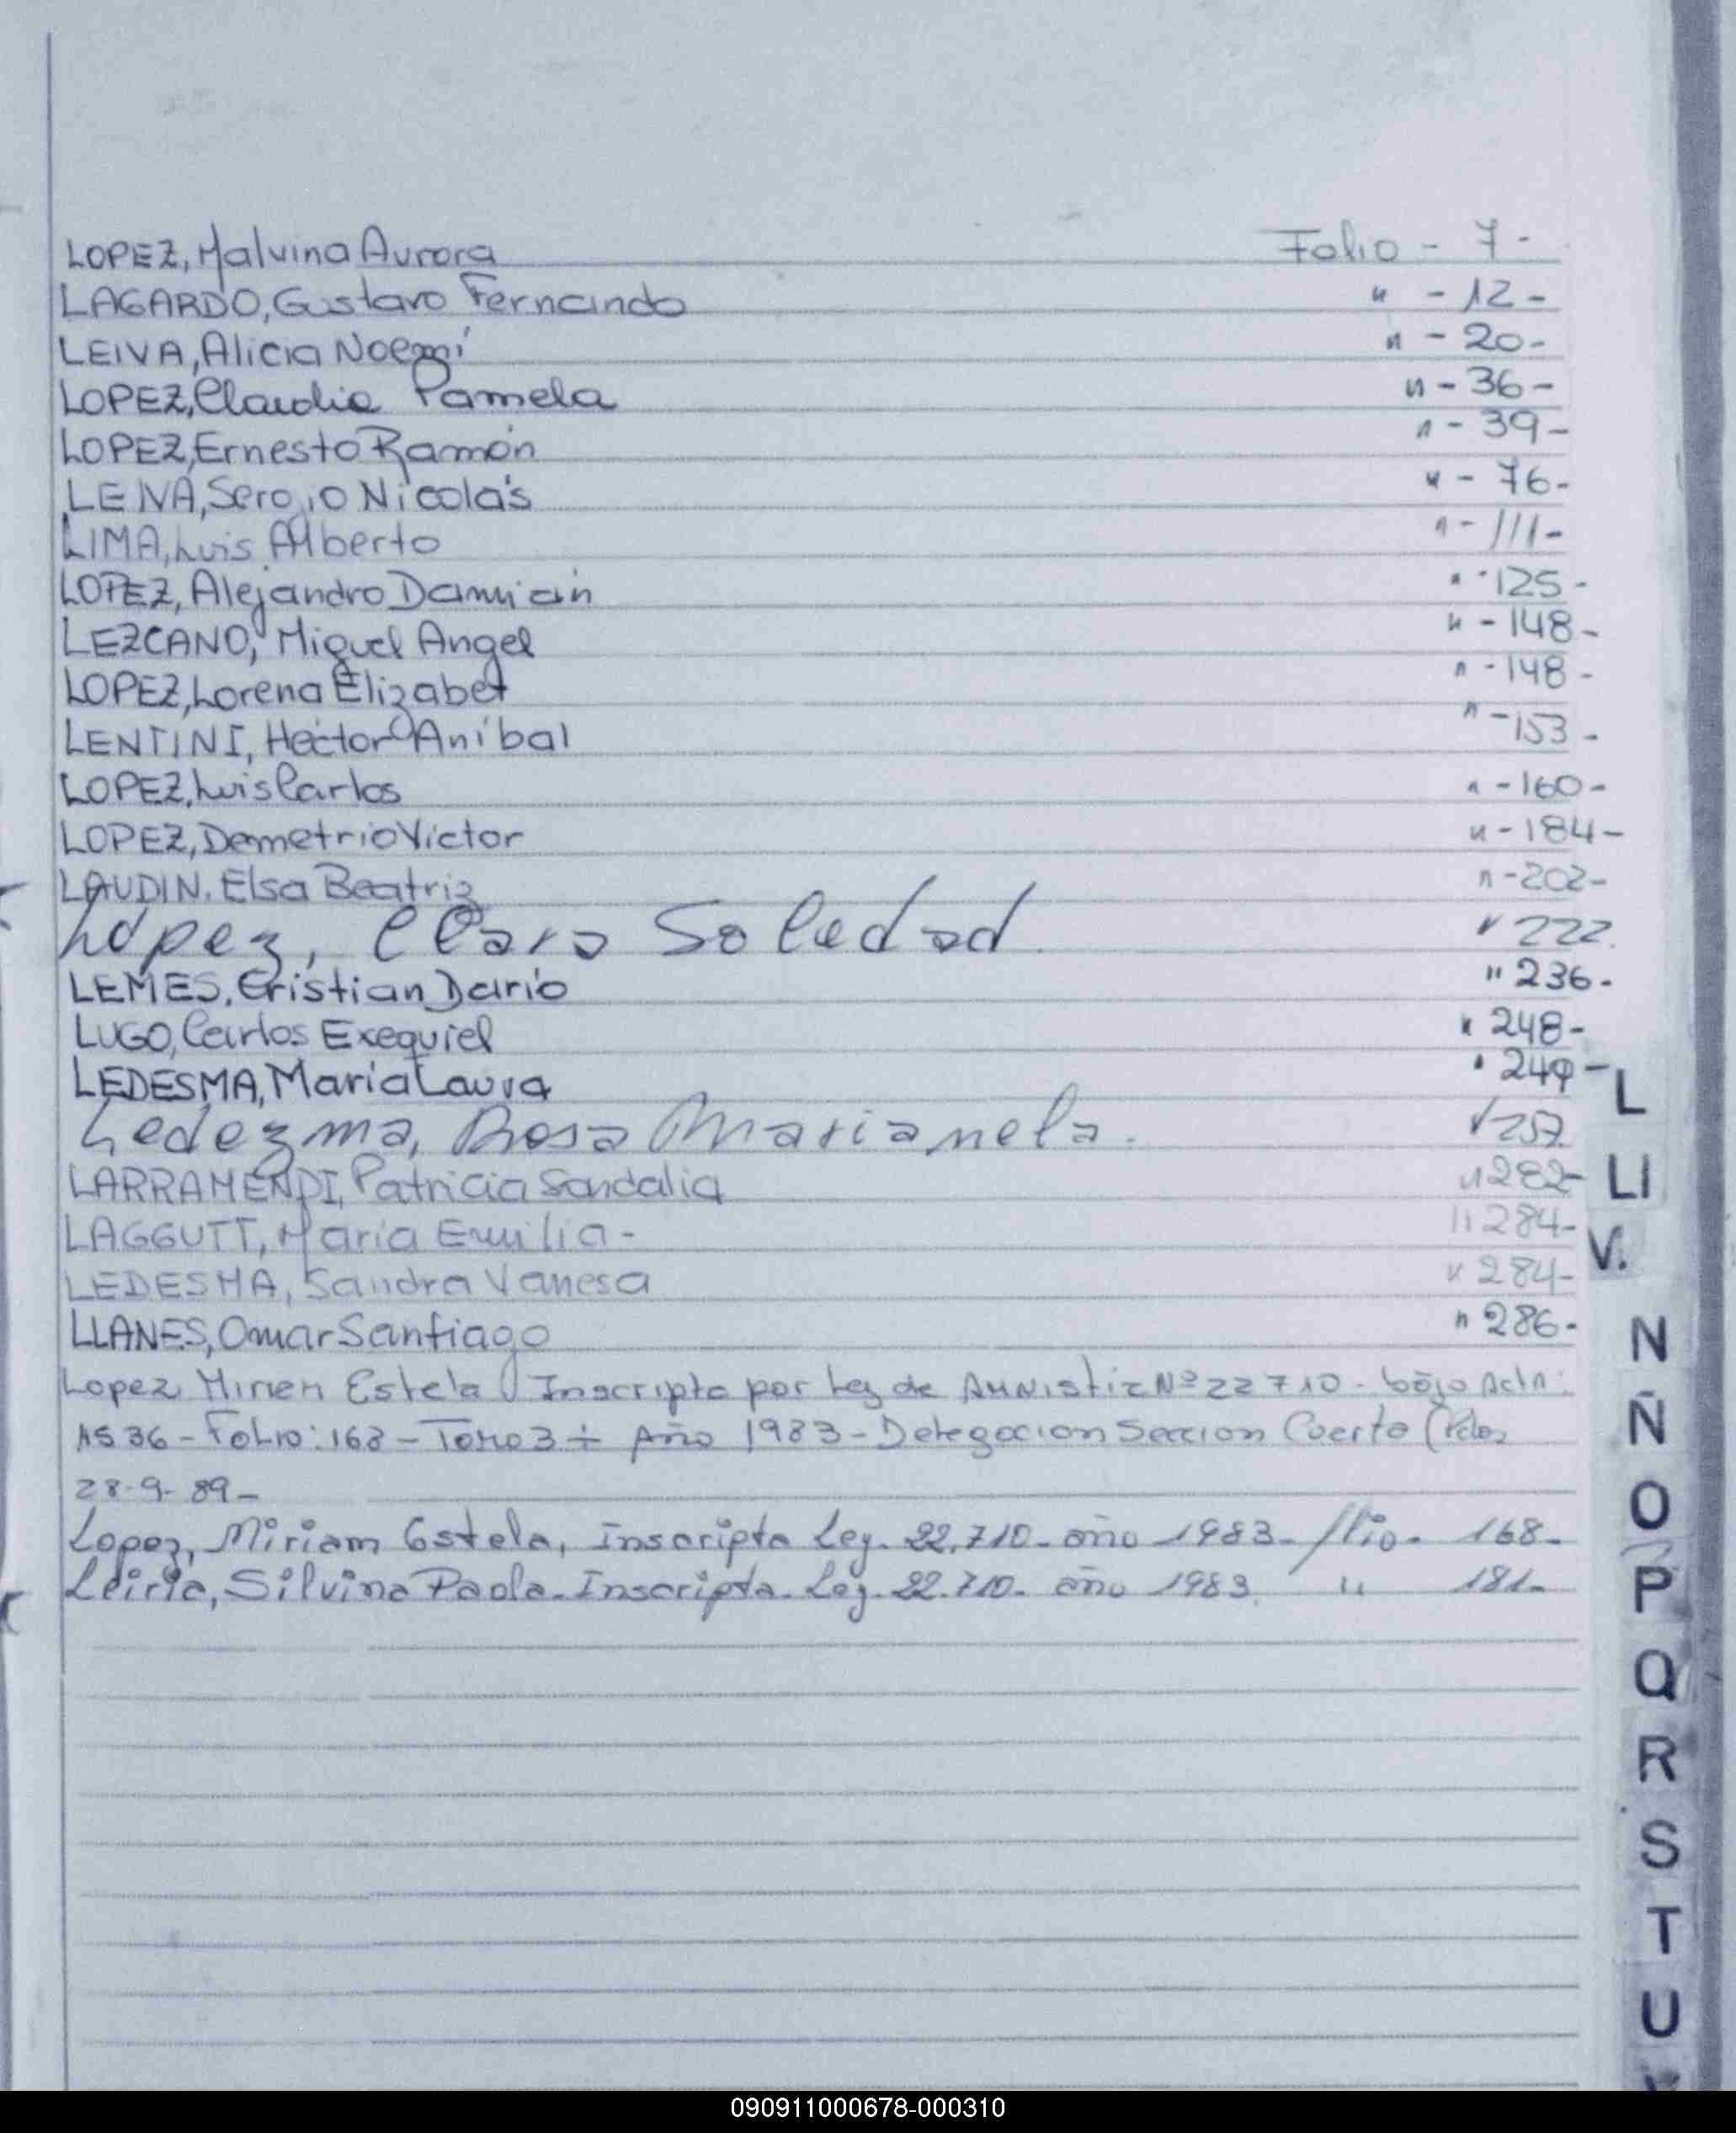 LOPEZ, Malvina Aurora Folio - 7 -
LAGARDO, Gustavo Fernando " - 12 -
LEIVA, Alicia Noemí " - 20 -
LOPEZ, Claudia Pamela " - 36 -
LOPEZ, Ernesto Ramón " - 39 -
LEIVA, Sergio Nicolás " - 76 -
LIMA, Luis Alberto " - 111 -
LOPEZ, Alejandro Damián " - 125 -
LEZCANO, Miguel Angel " - 148 -
LOPEZ, Lorena Elizabet " - 148 -
LENTINI, Hector Aníbal " - 153 -
LOPEZ, Luis Carlos " - 160 -
LOPEZ, Demetrio Victor " - 184 -
LAUDIN. Elsa Beatriz " - 202 -
López, Clara Soledad " 222.
LEMES, Cristian Dario " 236 -
LUGO, Carlos Exequiel " 248 -
LEDESMA, Maria Laura " 249 -
Ledezma, Rosa Marianela. " 257
LARRAMENDI, Patricia Sandalia " 282 -
LAGGUTT, Maria Emilia - " 284 -
LEDESMA, Sandra Vanesa " 284 -
LLANES, Omar Santiago " 286 -
Lopez Mirien Estela Inscripta por Ley de AMNistia Nº 22710 - bajo Acta:
AS36 - Folio: 168 - Tomo 3 Año 1983 - Delegacion Seccion Cuerta
28-9-89 -
Lopez, Miriam Estela, Inscripta Ley. 22.710 - año 1983 - 168 -
Silvina Paola - Inscripta - Ley. 22.710 - año 1983. " 181 -
L
LI
V.
N
Ñ
O
P
Q
R
S
T
U
090911000678-000310